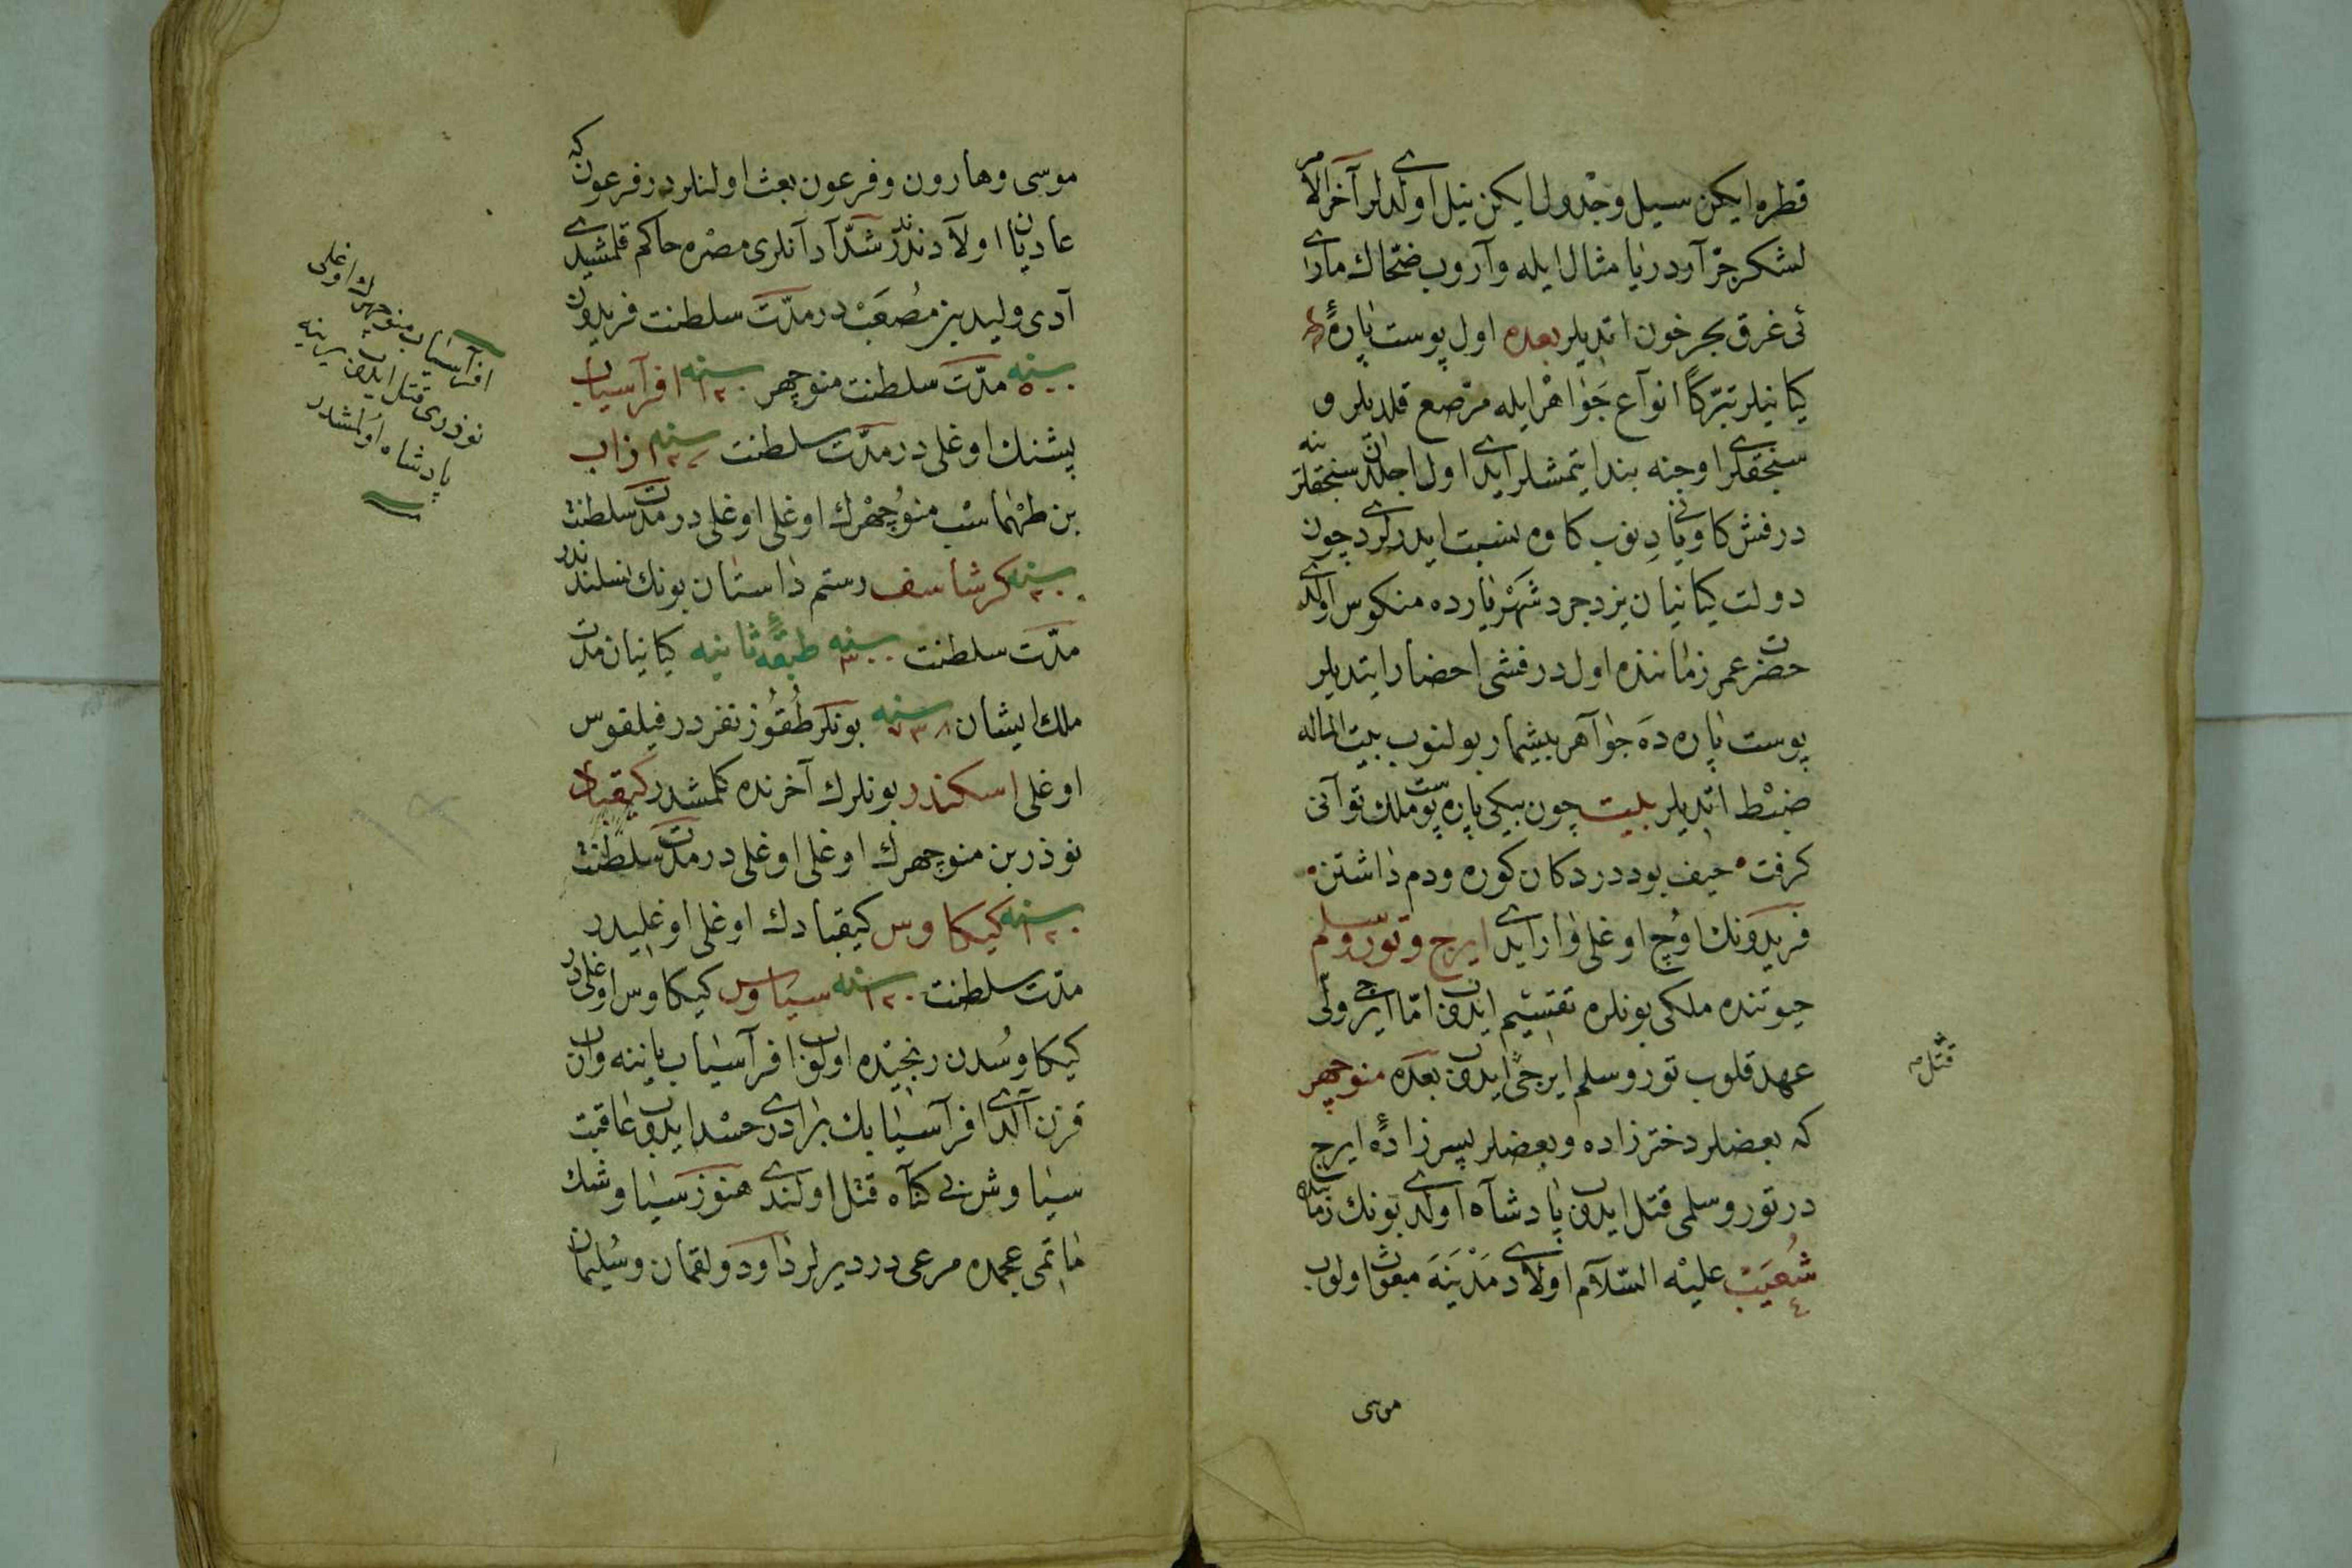 قطره ايكن سيل وجدول ايكن نيل اولديلر آخر الامر
لشكر جرّار دريا مثال ايله واروب ضحّاك مارى
ئى غرق بحر خون ايتديلر بعده اول پوست پارهٔ
كيانيلر تبرّكاً انواع جواهر ايله مرصّع قلديلر و
سنجقلرى اوجنه بند ايتمشلر ايدى اول اجلدن سنجقلرينه
درفش كاويانى ديوب كاوه يه نسبت ايدرلردى چون
دولت كيانيان يزدجرد شهرياره ده منكوس اولدى
حضرت عمر زماننده اول درفشى احضار ايتديلر
پوست پاره ده جواهر بيشمار بولنوب بيت الماله
ضبط ايتديلر بيت چون بيكى پاره پوست ملك توانى
كرفت حيف بود در دكان كوره ودم داشتن
فريدونك اوچ اوغلى وار ايدى ايرج وتور وسلم
حيوتنده ملكى بونلره تقسيم ايدوب امّا ايرج ولى
عهد قلوب تور وسلم ايرجى ايدوب بعده منوچهر
قتل صح
كه بعضلر دختر زاده وبعضلر پسر زادهٔ ايرج
در تور وسلمى قتل ايدوب پادشاه اولدى بونك زماننده
شعيب عليه السلام اولادى مدينه مبعوث اولوب
موسى
موسى وهارون وفرعون بعث اولنلردر فرعون كه
عاديان اولادندندر شدّاد آنلرى مصره حاكم قلمشيدى
آدى وليد بن مصعب در مدّت سلطنت فريدون
سنه ٥٠٠ مدّت سلطنت منوچهر سنه ١٢٠ افراسياب
پشنك اوغلى در مدّت سلطنت سنه ١٢ زاب
بن طهماسب منوچهرك اوغلى اوغلى در مدّت سلطنت
سنه ٣٠ كرشاسف رستم داستان بونك نسلندندر
مدّت سلطنت سنه ٣٠ طبقهٔ ثانيه كيانيان مدّت
ملك ايشان سنه ٧٣٨ بونلر طقوز نفردر فيلقوس
اوغلى اسكندر بونلرك آخرنده كلمشدر كيقباد
نوذر بن منوچهرك اوغلى اوغلى در مدّت سلطنت
سنه ١٢٠ كيكاوس كيقبادك اوغلى اوغليدر
مدّت سلطنت سنه ١٢٠ سياوس كيكاوس اوغلى در
كيكاوسدن رنجيده اولوب افراسياب ياننه واروب
قزن آلدى افراسيابك برادرى حسد ايدوب عاقبت
سياوش بى كناه قتل اولندى هنوز سياوشك
ماتمى عجمده مرعى در ديرلر داود ولقمان وسليمان
افراسياب منوچهرك اوغلى
نوذرى قتل ايدوب يرينه
پادشاه اولمشدر